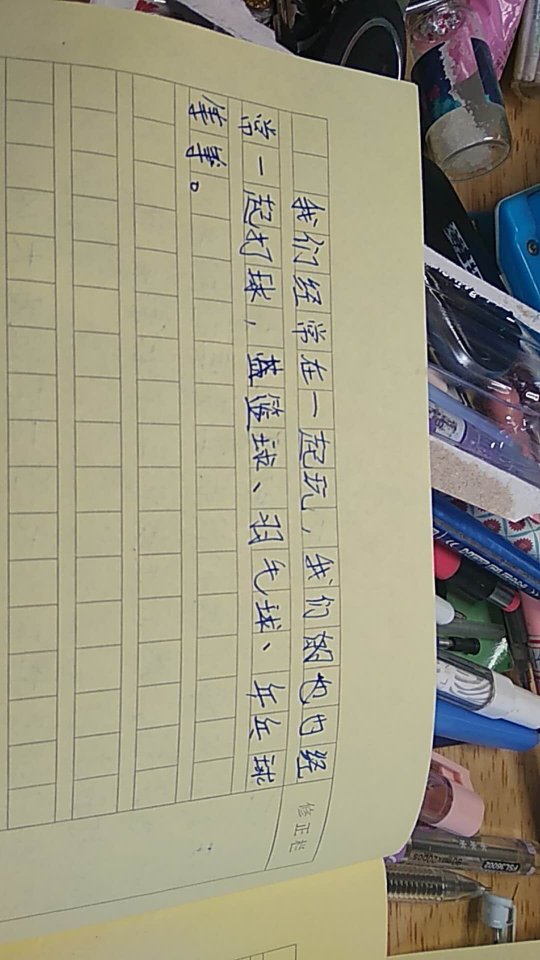 我们经常在一起玩，我们也内经
常一起打球，篮球、羽毛球、乒乓球
等等。
修正栏